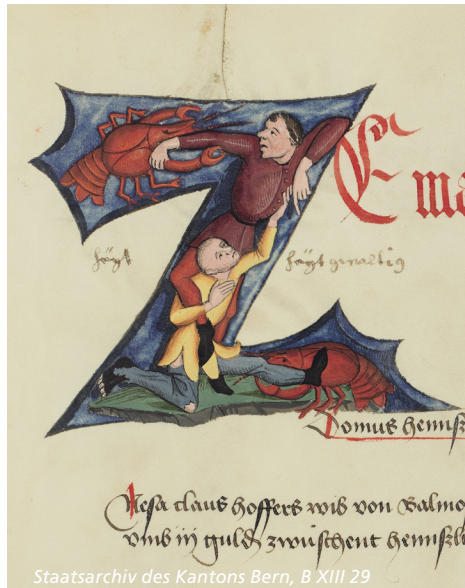 Z E ma
Domus hennß
Nesa claus hoffers wib von Balmo
vmb iij guld zwüschent hennßli
Staatsarchiv des Kantons Bern, B XIII 29